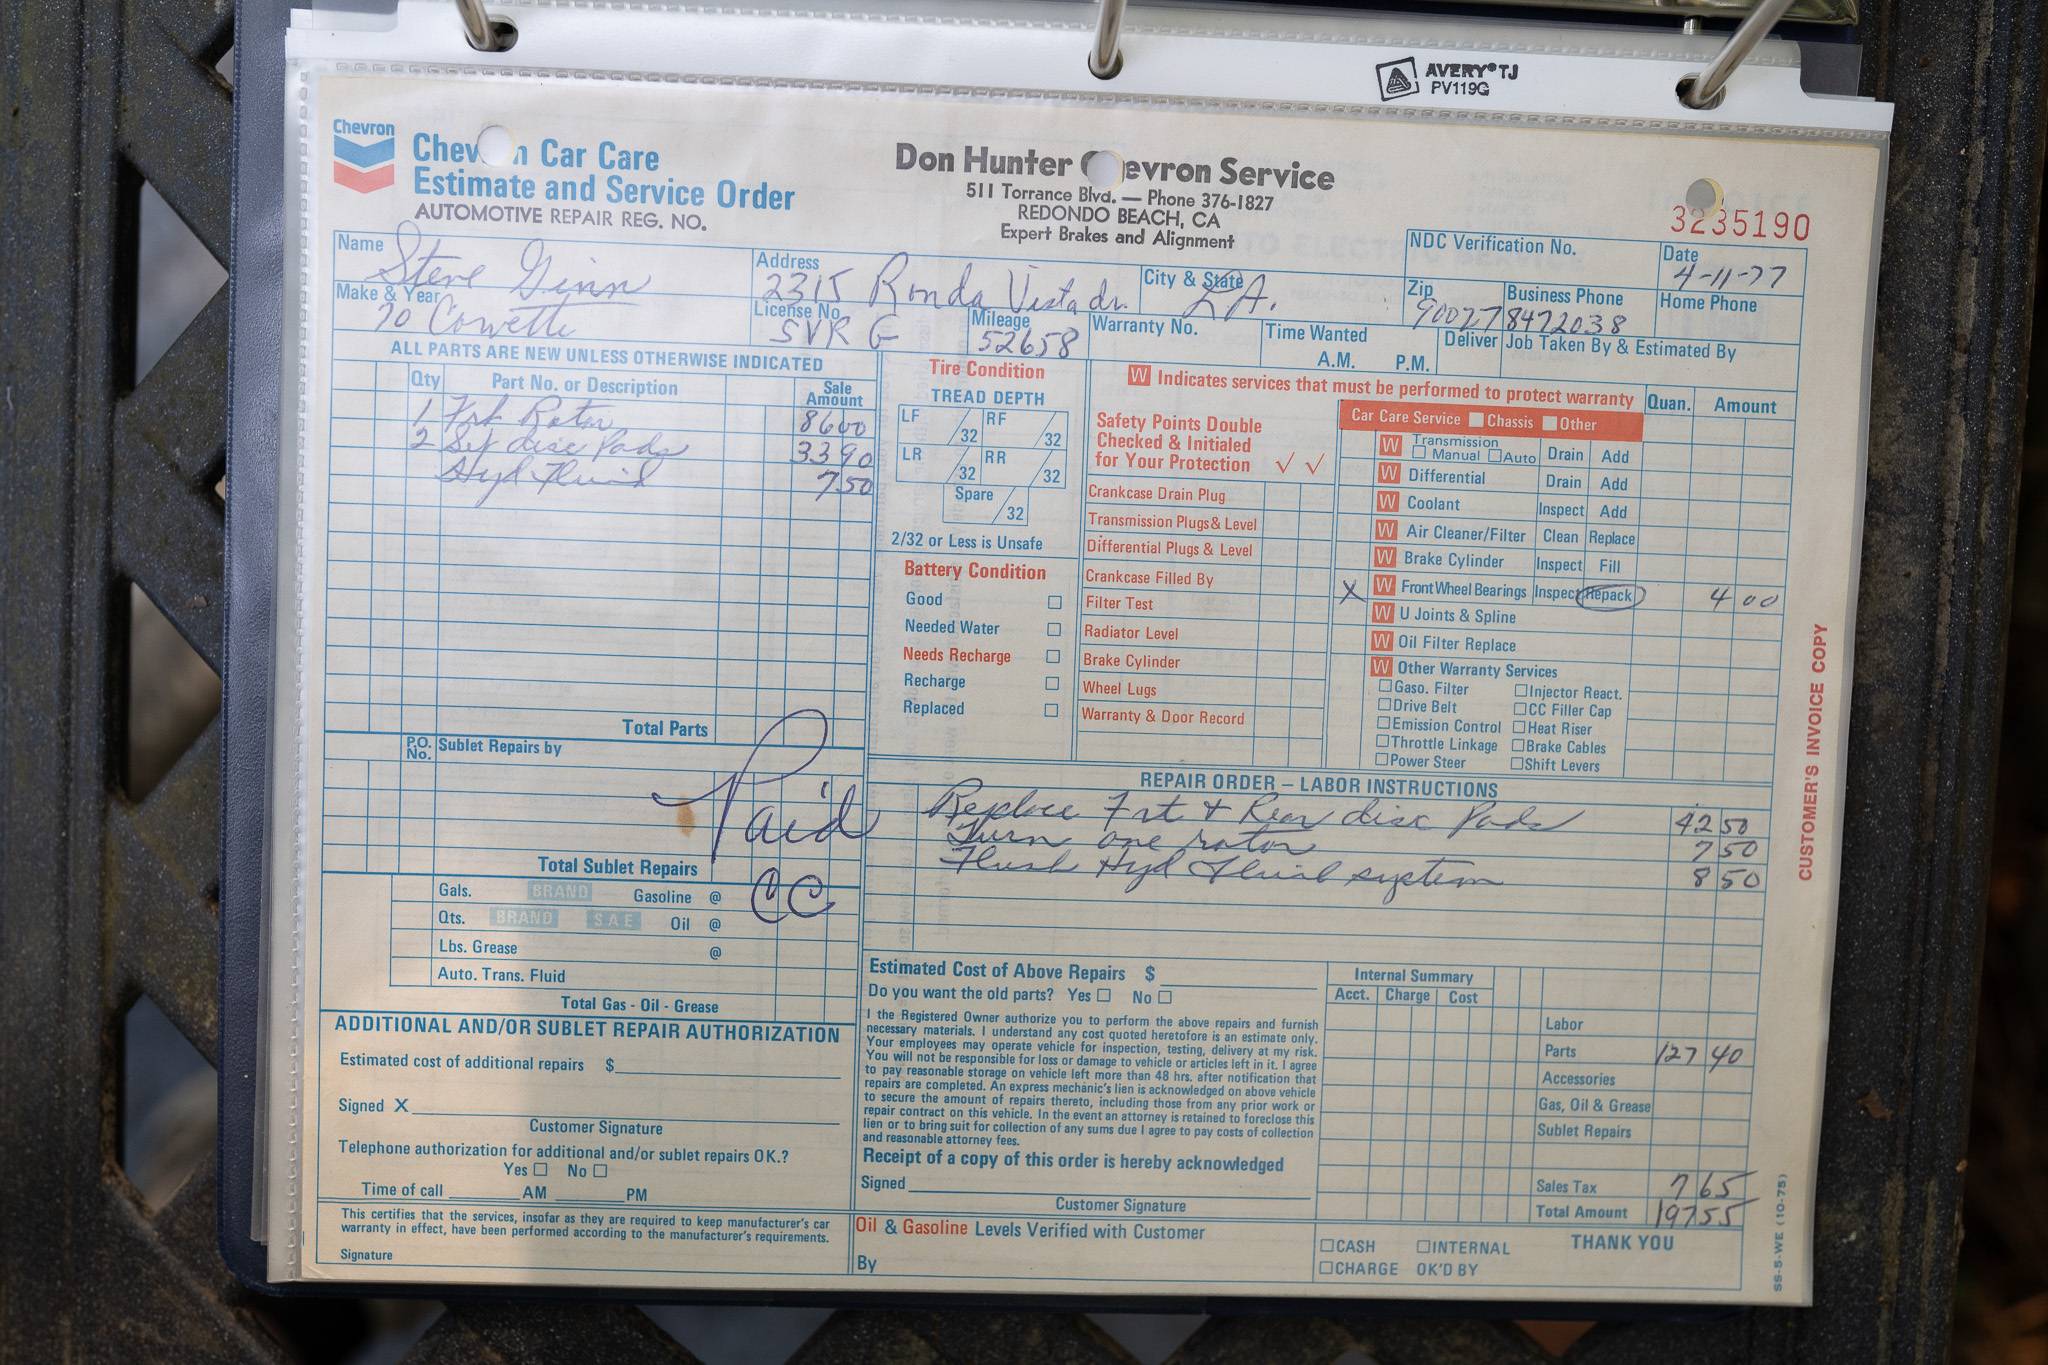 AVERY® TJ
PV119G
Chevron
Chev n Car Care
Estimate and Service Order
AUTOMOTIVE REPAIR REG. NO.
Don Hunter evron Service
511 Torrance Blvd. — Phone 376-1827
REDONDO BEACH, CA
Expert Brakes and Alignment
3235190
NDC Verification No.
Date
4-11-77
Name
Steve Ginn
Address
2315 Ronda Vista dr.
City & State
L.A.
Zip
90027
Business Phone
8472038
Home Phone
Make & Year
70 Corvette
License No.
SVR G
Mileage
52658
Warranty No.
Time Wanted
A.M. P.M.
Deliver
Job Taken By & Estimated By
ALL PARTS ARE NEW UNLESS OTHERWISE INDICATED
Qty Part No. or Description Sale Amount
1 Frt Rotor 86 00
2 Set disc Pads 33 90
Hyd Fluid 7 50
Total Parts
P.O. No. Sublet Repairs by
Paid
CC
Total Sublet Repairs
Gals. BRAND Gasoline @
Qts. BRAND SAE Oil @
Lbs. Grease @
Auto. Trans. Fluid
Total Gas - Oil - Grease
ADDITIONAL AND/OR SUBLET REPAIR AUTHORIZATION
Estimated cost of additional repairs $
Signed X
Customer Signature
Telephone authorization for additional and/or sublet repairs OK.?
Yes No
Time of call AM PM
This certifies that the services, insofar as they are required to keep manufacturer's car
warranty in effect, have been performed according to the manufacturer's requirements.
Signature
Tire Condition
TREAD DEPTH
LF /32 RF /32
LR /32 RR /32
Spare /32
2/32 or Less is Unsafe
Battery Condition
Good
Needed Water
Needs Recharge
Recharge
Replaced
W Indicates services that must be performed to protect warranty
Quan. Amount
Safety Points Double
Checked & Initialed
for Your Protection ✓ ✓
Crankcase Drain Plug
Transmission Plugs & Level
Differential Plugs & Level
Crankcase Filled By
Filter Test
Radiator Level
Brake Cylinder
Wheel Lugs
Warranty & Door Record
Car Care Service Chassis Other
W Transmission Manual Auto Drain Add
W Differential Drain Add
W Coolant Inspect Add
W Air Cleaner/Filter Clean Replace
W Brake Cylinder Inspect Fill
X W Front Wheel Bearings Inspect Repack 4 00
W U Joints & Spline
W Oil Filter Replace
W Other Warranty Services
Gaso. Filter Injector React.
Drive Belt CC Filler Cap
Emission Control Heat Riser
Throttle Linkage Brake Cables
Power Steer Shift Levers
REPAIR ORDER – LABOR INSTRUCTIONS
Replace Frt & Rear disc Pads 42 50
Turn one rotor 7 50
Flush Hyd Fluid system 8 50
Estimated Cost of Above Repairs $
Do you want the old parts? Yes No
I the Registered Owner authorize you to perform the above repairs and furnish
necessary materials. I understand any cost quoted heretofore is an estimate only.
Your employees may operate vehicle for inspection, testing, delivery at my risk.
You will not be responsible for loss or damage to vehicle or articles left in it. I agree
to pay reasonable storage on vehicle left more than 48 hrs. after notification that
repairs are completed. An express mechanic's lien is acknowledged on above vehicle
to secure the amount of repairs thereto, including those from any prior work or
repair contract on this vehicle. In the event an attorney is retained to foreclose this
lien or to bring suit for collection of any sums due I agree to pay costs of collection
and reasonable attorney fees.
Receipt of a copy of this order is hereby acknowledged
Signed
Customer Signature
Oil & Gasoline Levels Verified with Customer
By
Internal Summary
Acct. Charge Cost
Labor
Parts 127 40
Accessories
Gas, Oil & Grease
Sublet Repairs
Sales Tax 7 65
Total Amount 197 55
CASH INTERNAL
CHARGE OK'D BY
THANK YOU
CUSTOMER'S INVOICE COPY
SS-5-WE (10-75)